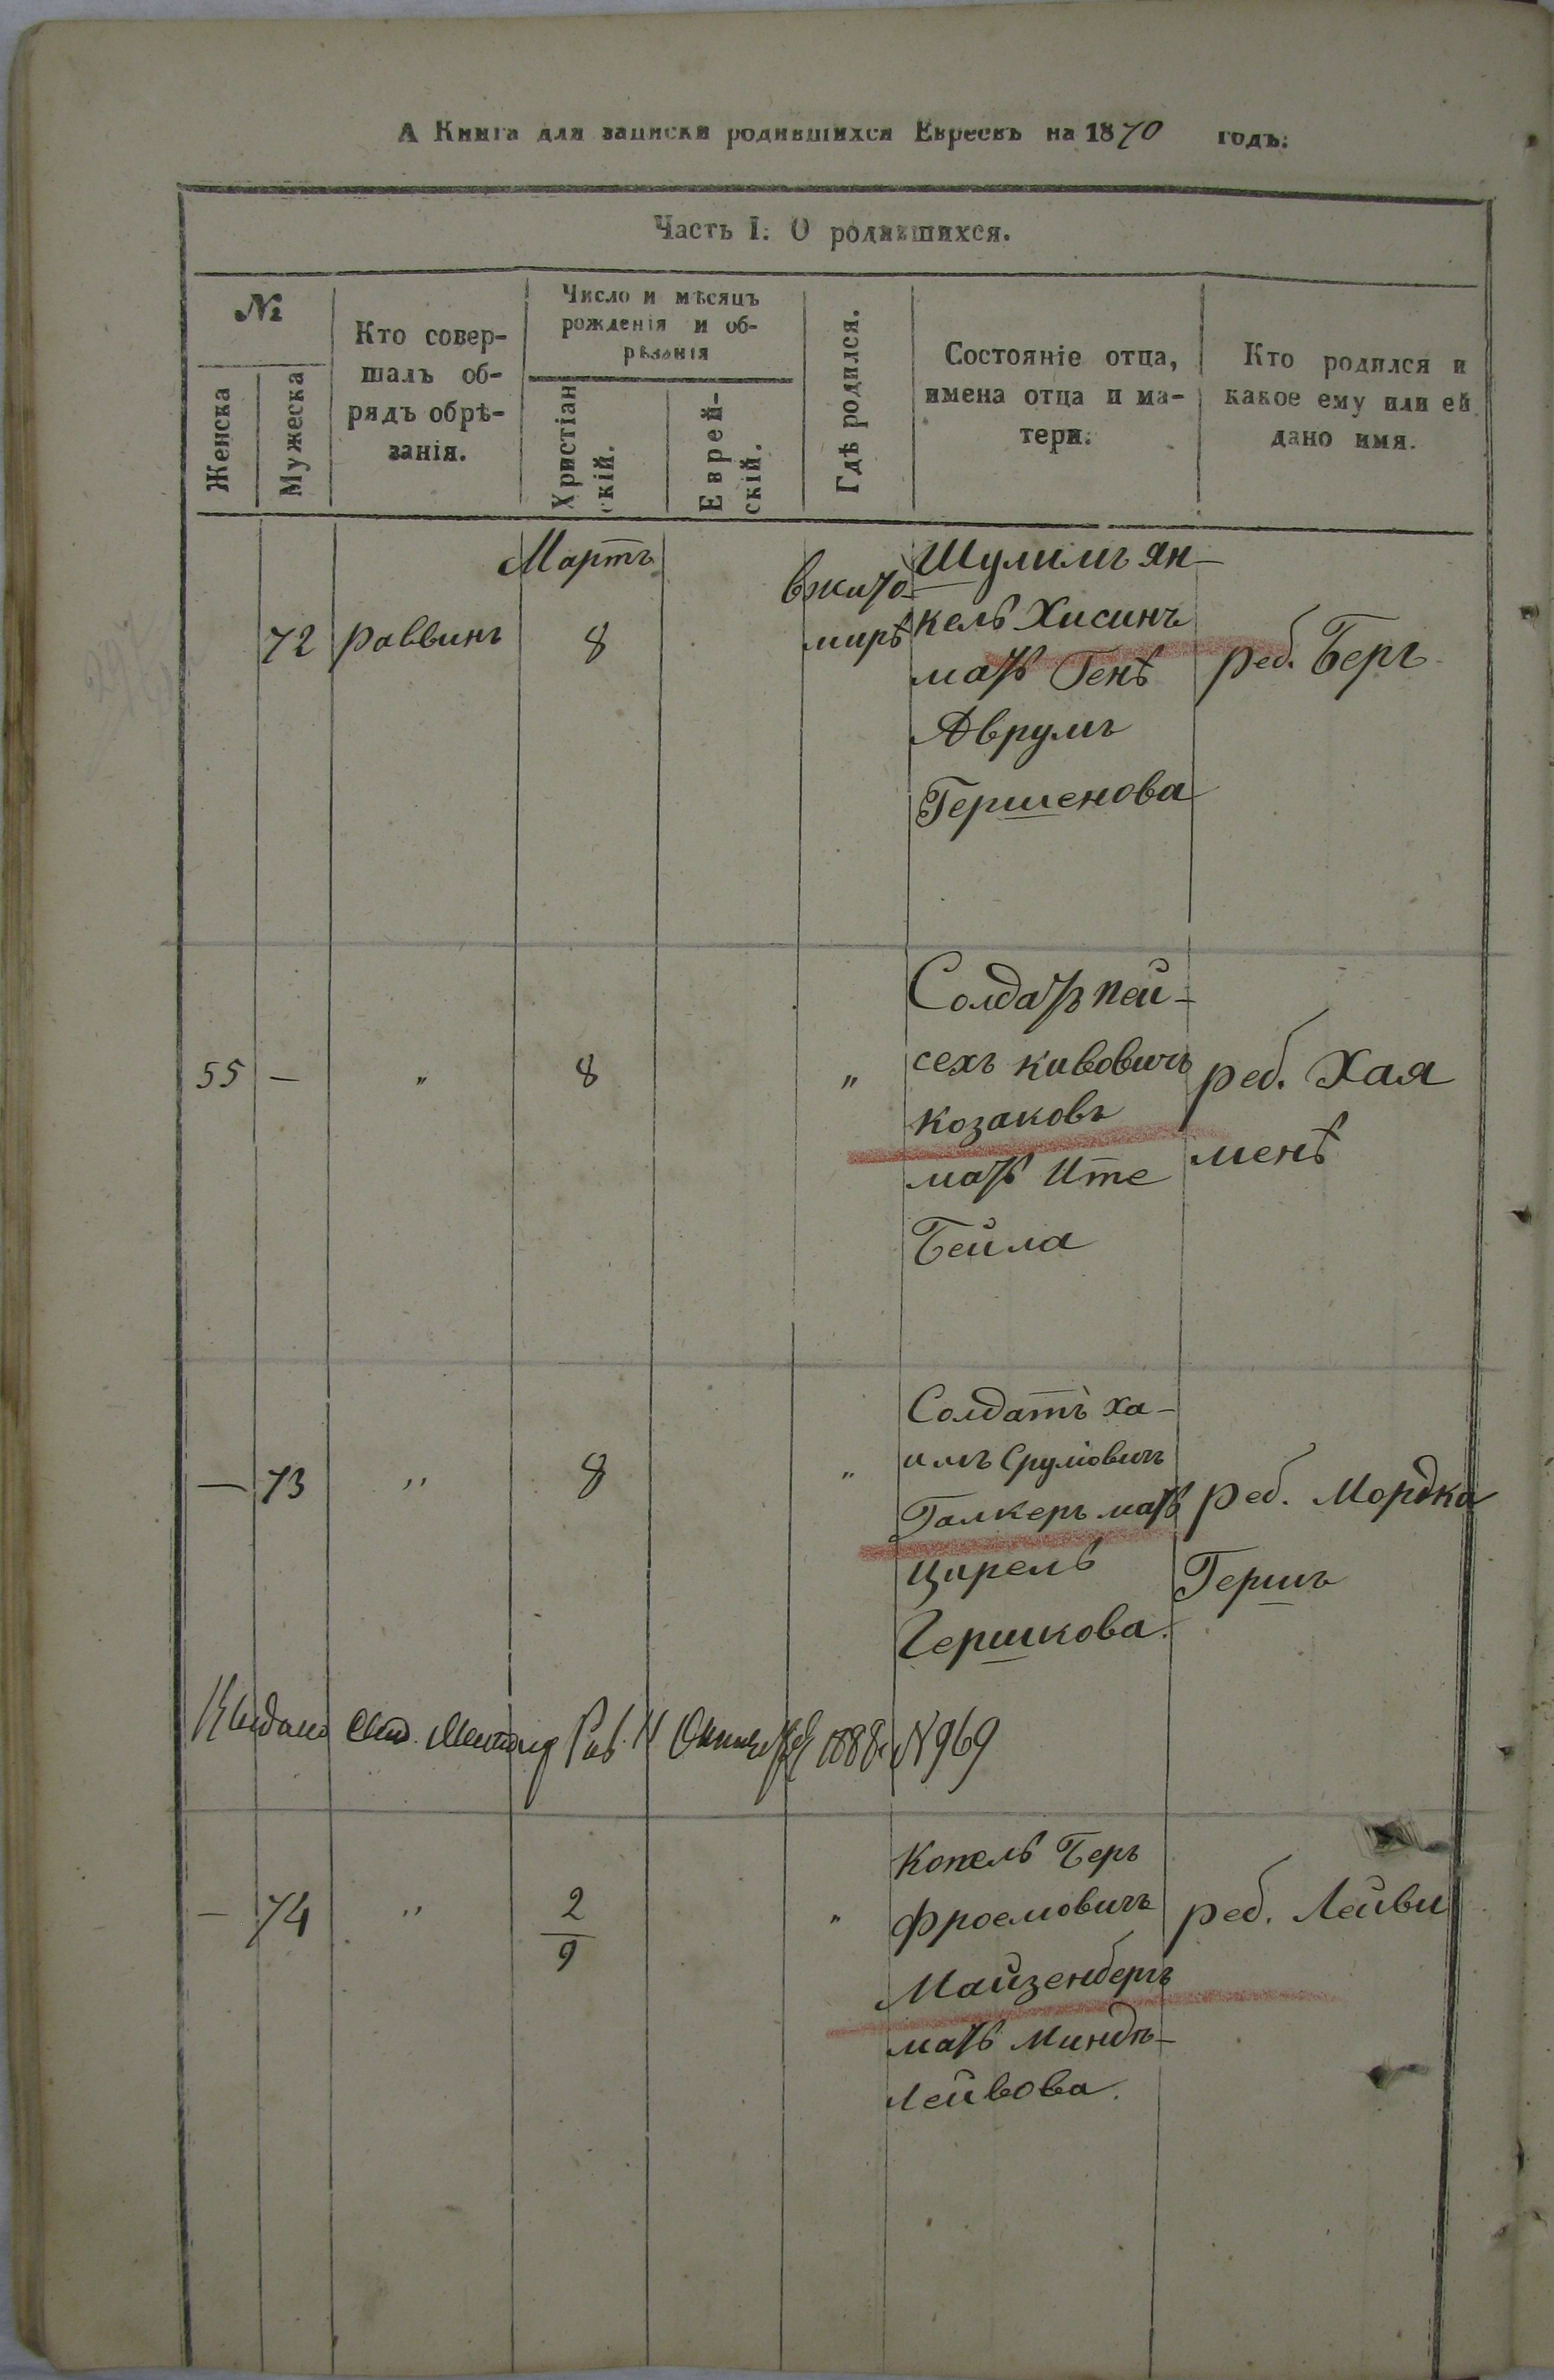 А Книга для записки родившихся Евреевъ на 1870 годъ.
Часть I. О родившихся.
№
Женска
Мужеска
Кто совер-
шалъ об-
рядъ обрѣ-
занія.
Число и мѣсяцъ
рожденія и об-
рѣзанія
Христіан
скій.
Еврей-
скій.
Гдѣ родился.
Состояніе отца,
имена отца и ма-
тери.
Кто родился и
какое ему или ей
дано имя.
Мартъ
72
раввинъ
8
вжито-
мирѣ
Шулимъ Ян-
кель Хисинъ
мать Генѣ
Аврумъ
Гершенова
реб. Беръ
55
—
"
8
"
Солдатъ Пей-
сехъ Кивовичъ
Козаковъ
мать Ите
Бейла
реб. Хая
менѣ
—
73
"
8
"
Солдатъ Ха-
имъ Срулiовичъ
Галкеръ мать
Цирель
Гершкова.
реб. Мордка
Гершъ
1888 №969
—
74
"
2
9
"
Копель Беръ
Фроемовичъ
Майзенбергъ
мать Миндѣ-
Лейвова.
реб. Лейви